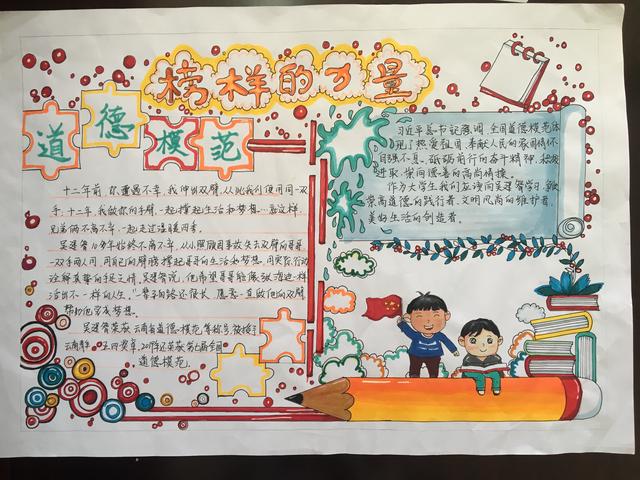 榜样的力量
道德模范
十二年前,你遭遇不幸,我伸出双臂,从此我们便用同一双
手,十二年,我做你的手臂,一起撑起生活和梦想…就这样,
兄弟俩不离不弃,一起走过温暖四季。
吴建智10多年始终不离不弃,从小照顾因事故失去双臂的哥哥
一双手两人用,用自己的臂膀撑起哥哥的生活和梦想,用实际行动
诠释真挚的手足之情。吴建智说,他希望哥哥能像张海迪一样
活出不一样的人生,"一辈子的路还很长,愿意一直做他的双臂,
帮助他完成梦想。
吴建智荣获云南省道德模范等称号,被授予
云南青年五四奖章,2019年还荣获第七届全国
道德模范。
习近平总书记强调,全国道德模范体
现了热爱祖国、奉献人民的家国情怀,
自强不息、砥砺前行的奋斗精神,积极
进取、崇德向善的高尚情操。
作为大学生我们应该向吴建智学习,做
崇高道德的践行者,文明风尚的维护者,
美好生活的创造者。